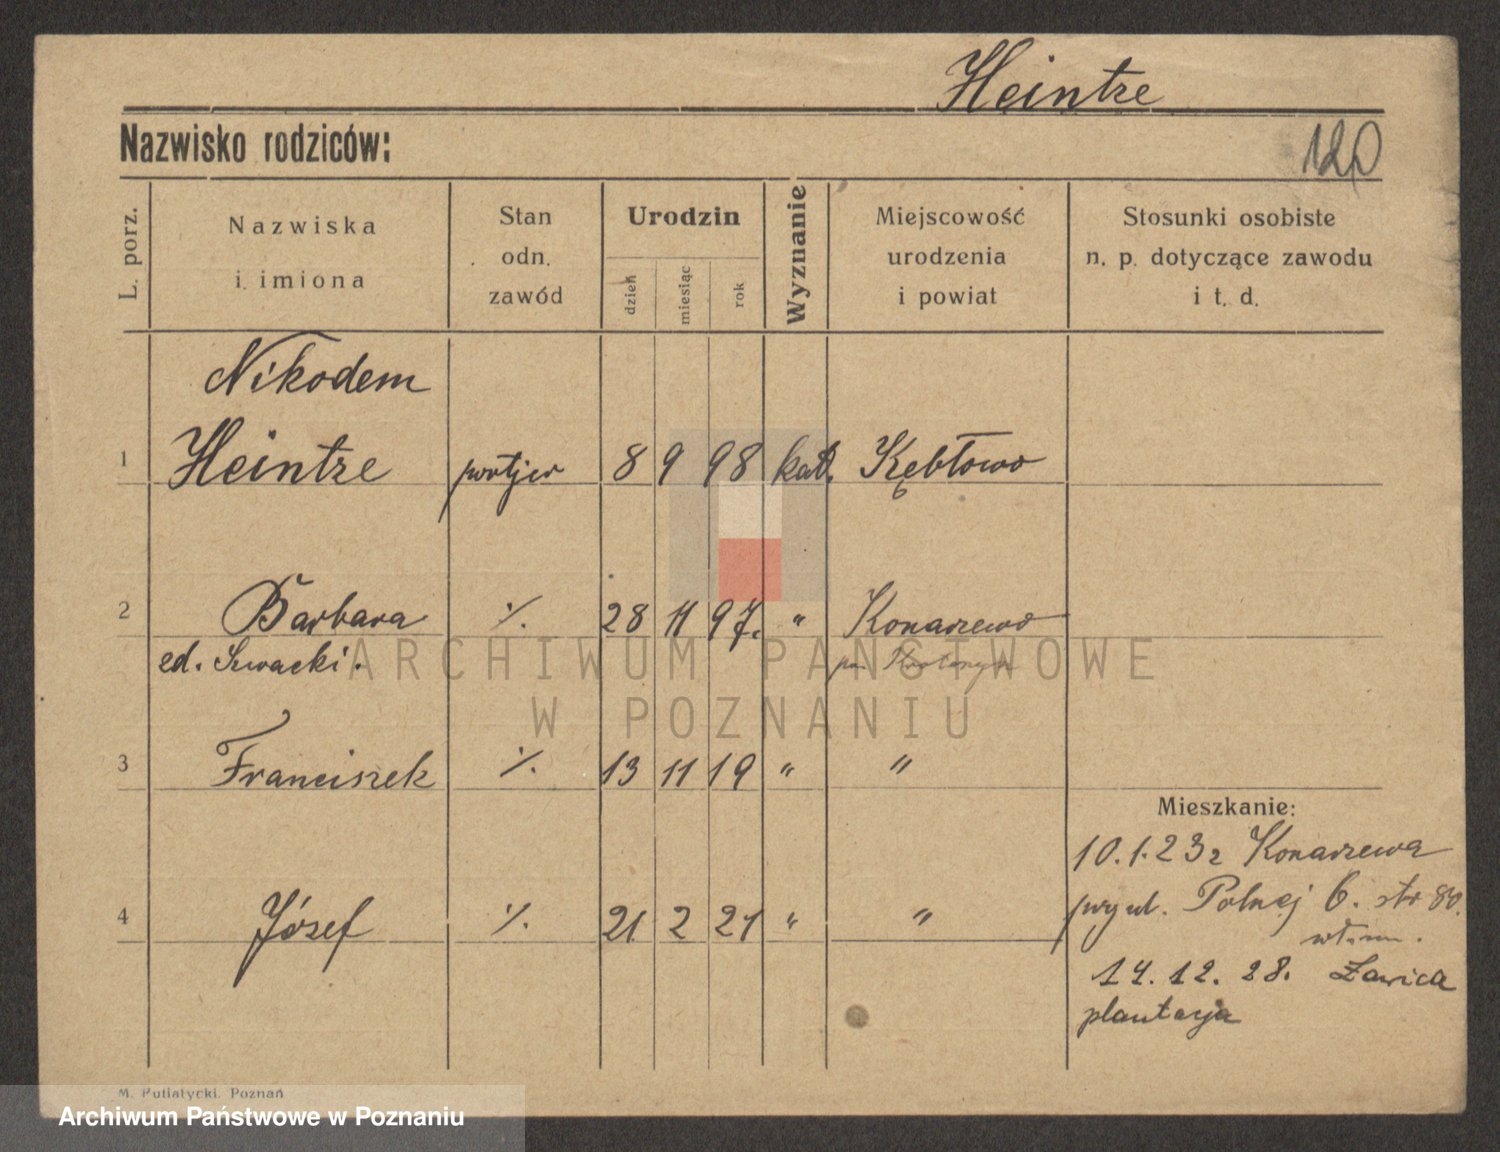 Heintze
Nazwisko rodziców:
120
L. porz.
Nazwiska
i imiona
Stan
odn.
zawód
Urodzin
dzień
miesiąc
rok
Wyznanie
Miejscowość
urodzenia
i powiat
Stosunki osobiste
n. p. dotyczące zawodu
i t. d.
Nikodem
1 Heintze portjer 8 9 98 kat. Kębłowo
2 Barbara ·/. 28 11 97. " Konarzewo
zd. Suwacki.
ARCHIWUM PAŃSTWOWE
W POZNANIU
3 Franciszek ·/. 13 11 19 " "
Mieszkanie:
10.1.23 z Konarzewa
4 Józef ·/. 21 2 21 " "
przy ul. Polnej 6. str 80.
14.12.28. Ławica
plantacja
M. Putiatycki. Poznań
Archiwum Państwowe w Poznaniu